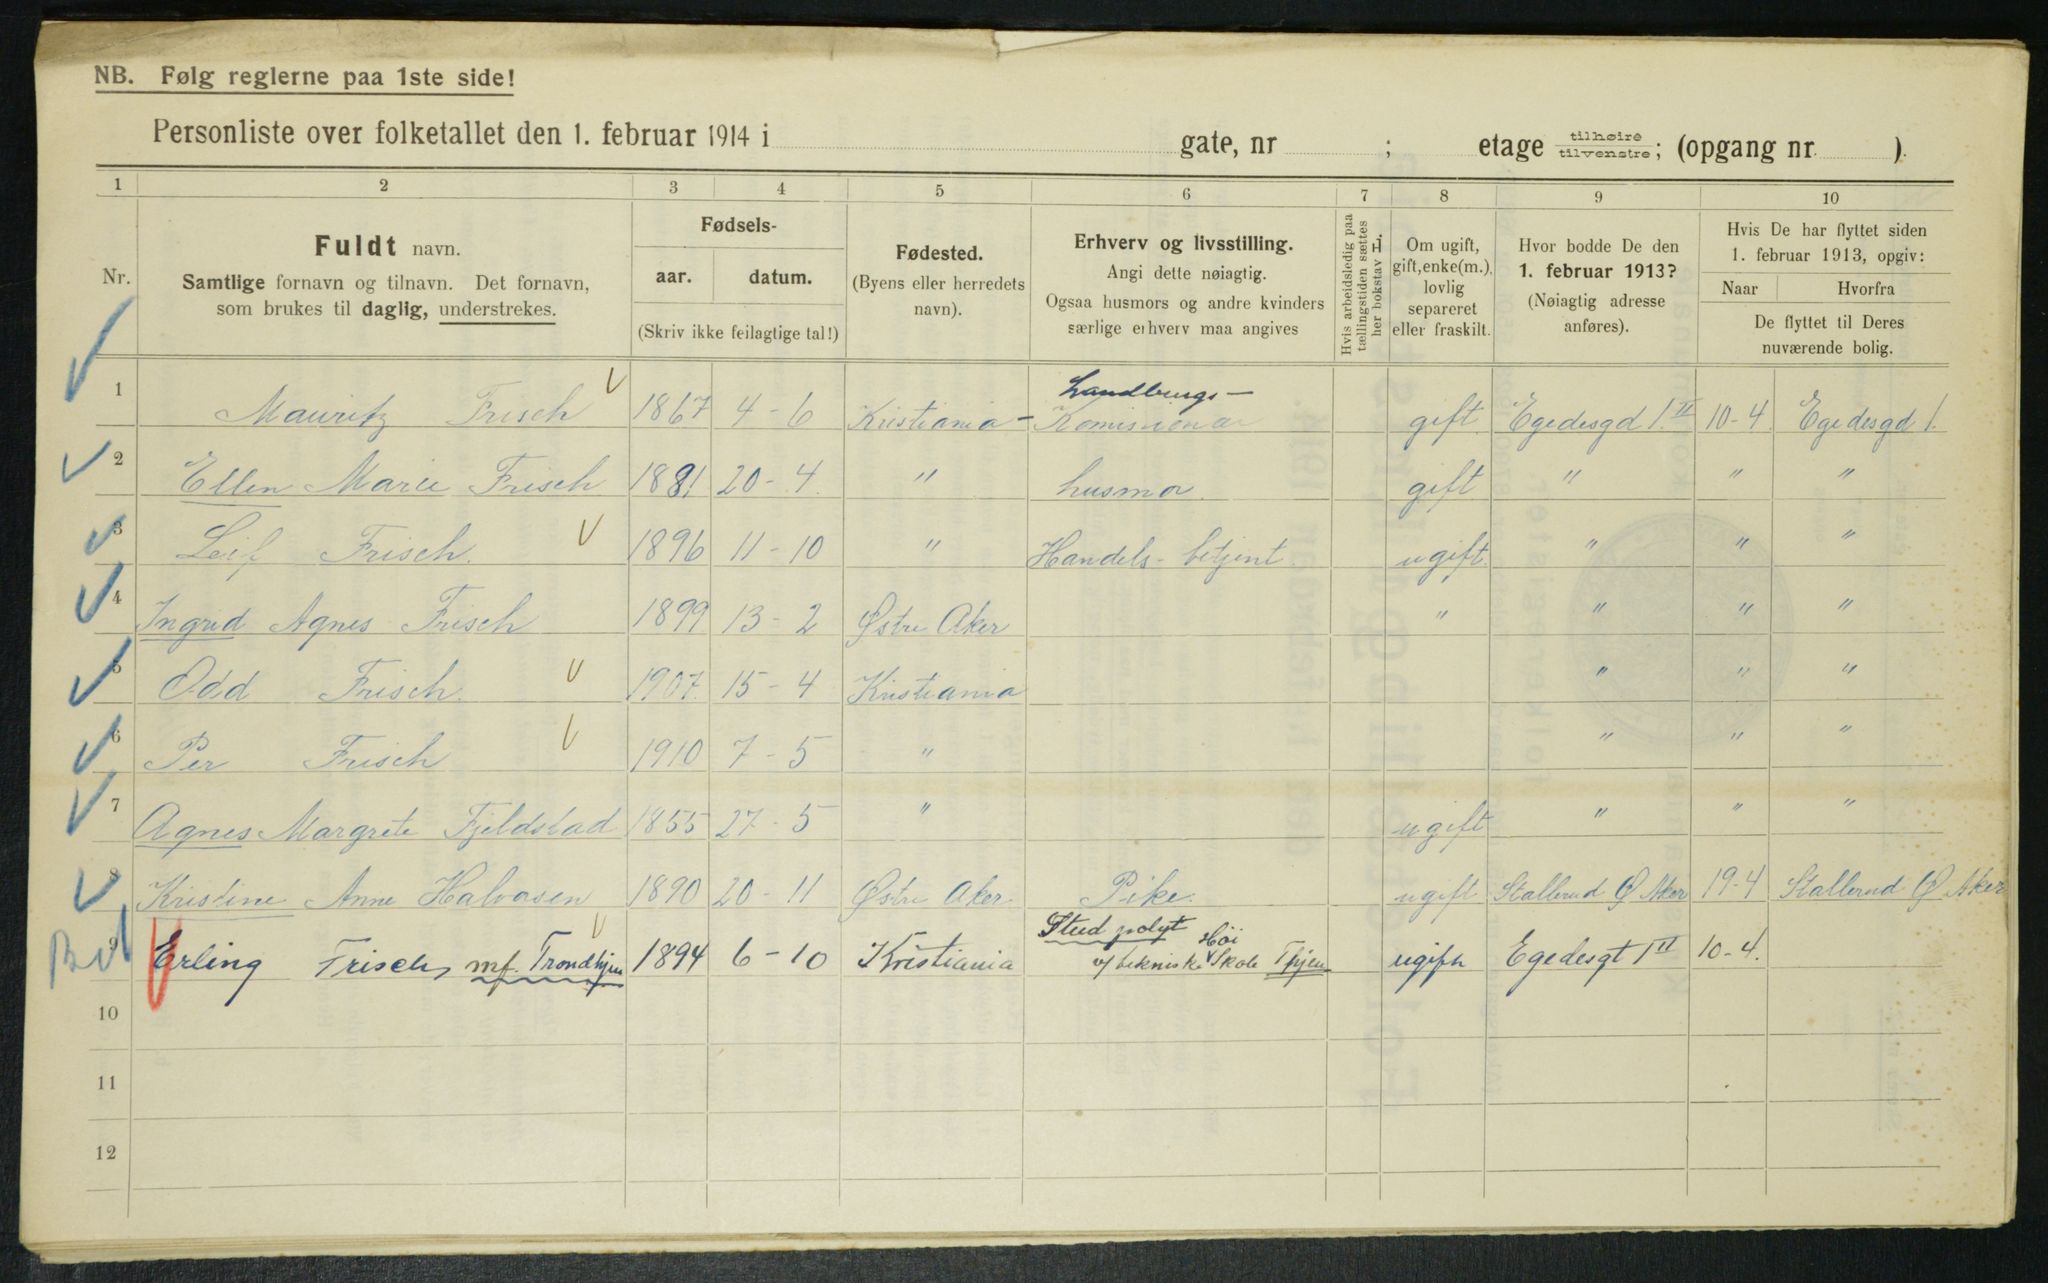 NB. Følg reglerne paa 1ste side!
Personliste over folketallet den 1. februar 1914 i gate, nr ; etage tilhøire tilvenstre; (opgang nr. ).
1 2 3 4 5 6 7 8 9 10
Nr.
Fuldt navn.
Samtlige fornavn og tilnavn. Det fornavn,
som brukes til daglig, understrekes.
Fødsels-
aar. datum.
(Skriv ikke feilagtige tal!)
Fødested.
(Byens eller herredets
navn).
Erhverv og livsstilling.
Angi dette nøiagtig.
Ogsaa husmors og andre kvinders
særlige erhverv maa angives
Hvis arbeidsledig paa
tællingstiden sættes
her bokstav L.
Om ugift,
gift, enke(m.),
lovlig
separeret
eller fraskilt.
Hvor bodde De den
1. februar 1913?
(Nøiagtig adresse
anføres).
Hvis De har flyttet siden
1. februar 1913, opgiv:
Naar Hvorfra
De flyttet til Deres
nuværende bolig.
Landbrugs-
1 Mauritz Frisch 1867 4-6 Kristiania - Komisionær gift Egedesgd 1. II 10-4 Egedesgd 1.
2 Ellen Marie Frisch 1881 20-4 " husmor gift " " "
3 Leif Frisch. 1896 11-10 " Handels-betjent ugift. " " "
4 Ingrid Agnes Frisch 1899 13-2 Østre Aker " " " "
5 Odd Frisch. 1907. 15-4 Kristiania " " "
6 Per Frisch 1910 7-5 " " " "
7 Agnes Margrete Fjeldstad 1855 27-5 " ugift " " "
8 Kristine Anne Halvorsen 1890 20-11 Østre Aker Pike. ugift Stallerud Ø Aker 19-4 Stallerud Ø Aker
Stud polyt
9 Erling Frisch, mf. Trondhjem 1894 6-10 Kristiania v/ tekniske Höi Skole Thjem ugift Egedesgt 1 II 10-4.
10
11
12